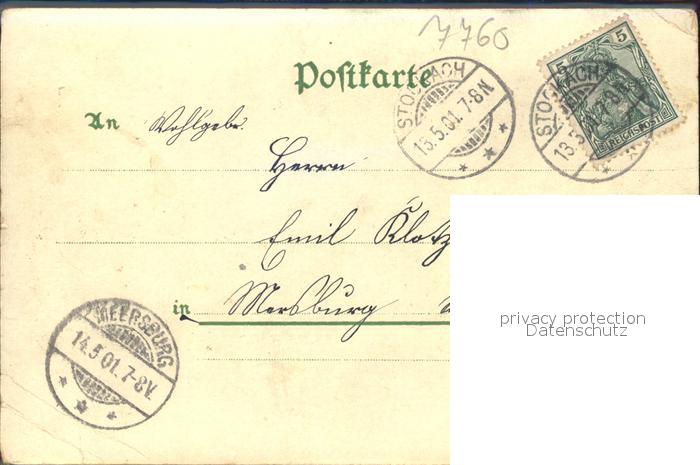 7760
Postkarte
STOCKACH
13.5.01.7-8N
STOCKACH
13.5.01.7-8N
5
5
REICHSPOST
An Wohlgebr.
Herrn
Emil Klotz
in Mersburg
MEERSBURG
14.5.01.7-8V.
privacy protection
Datenschutz